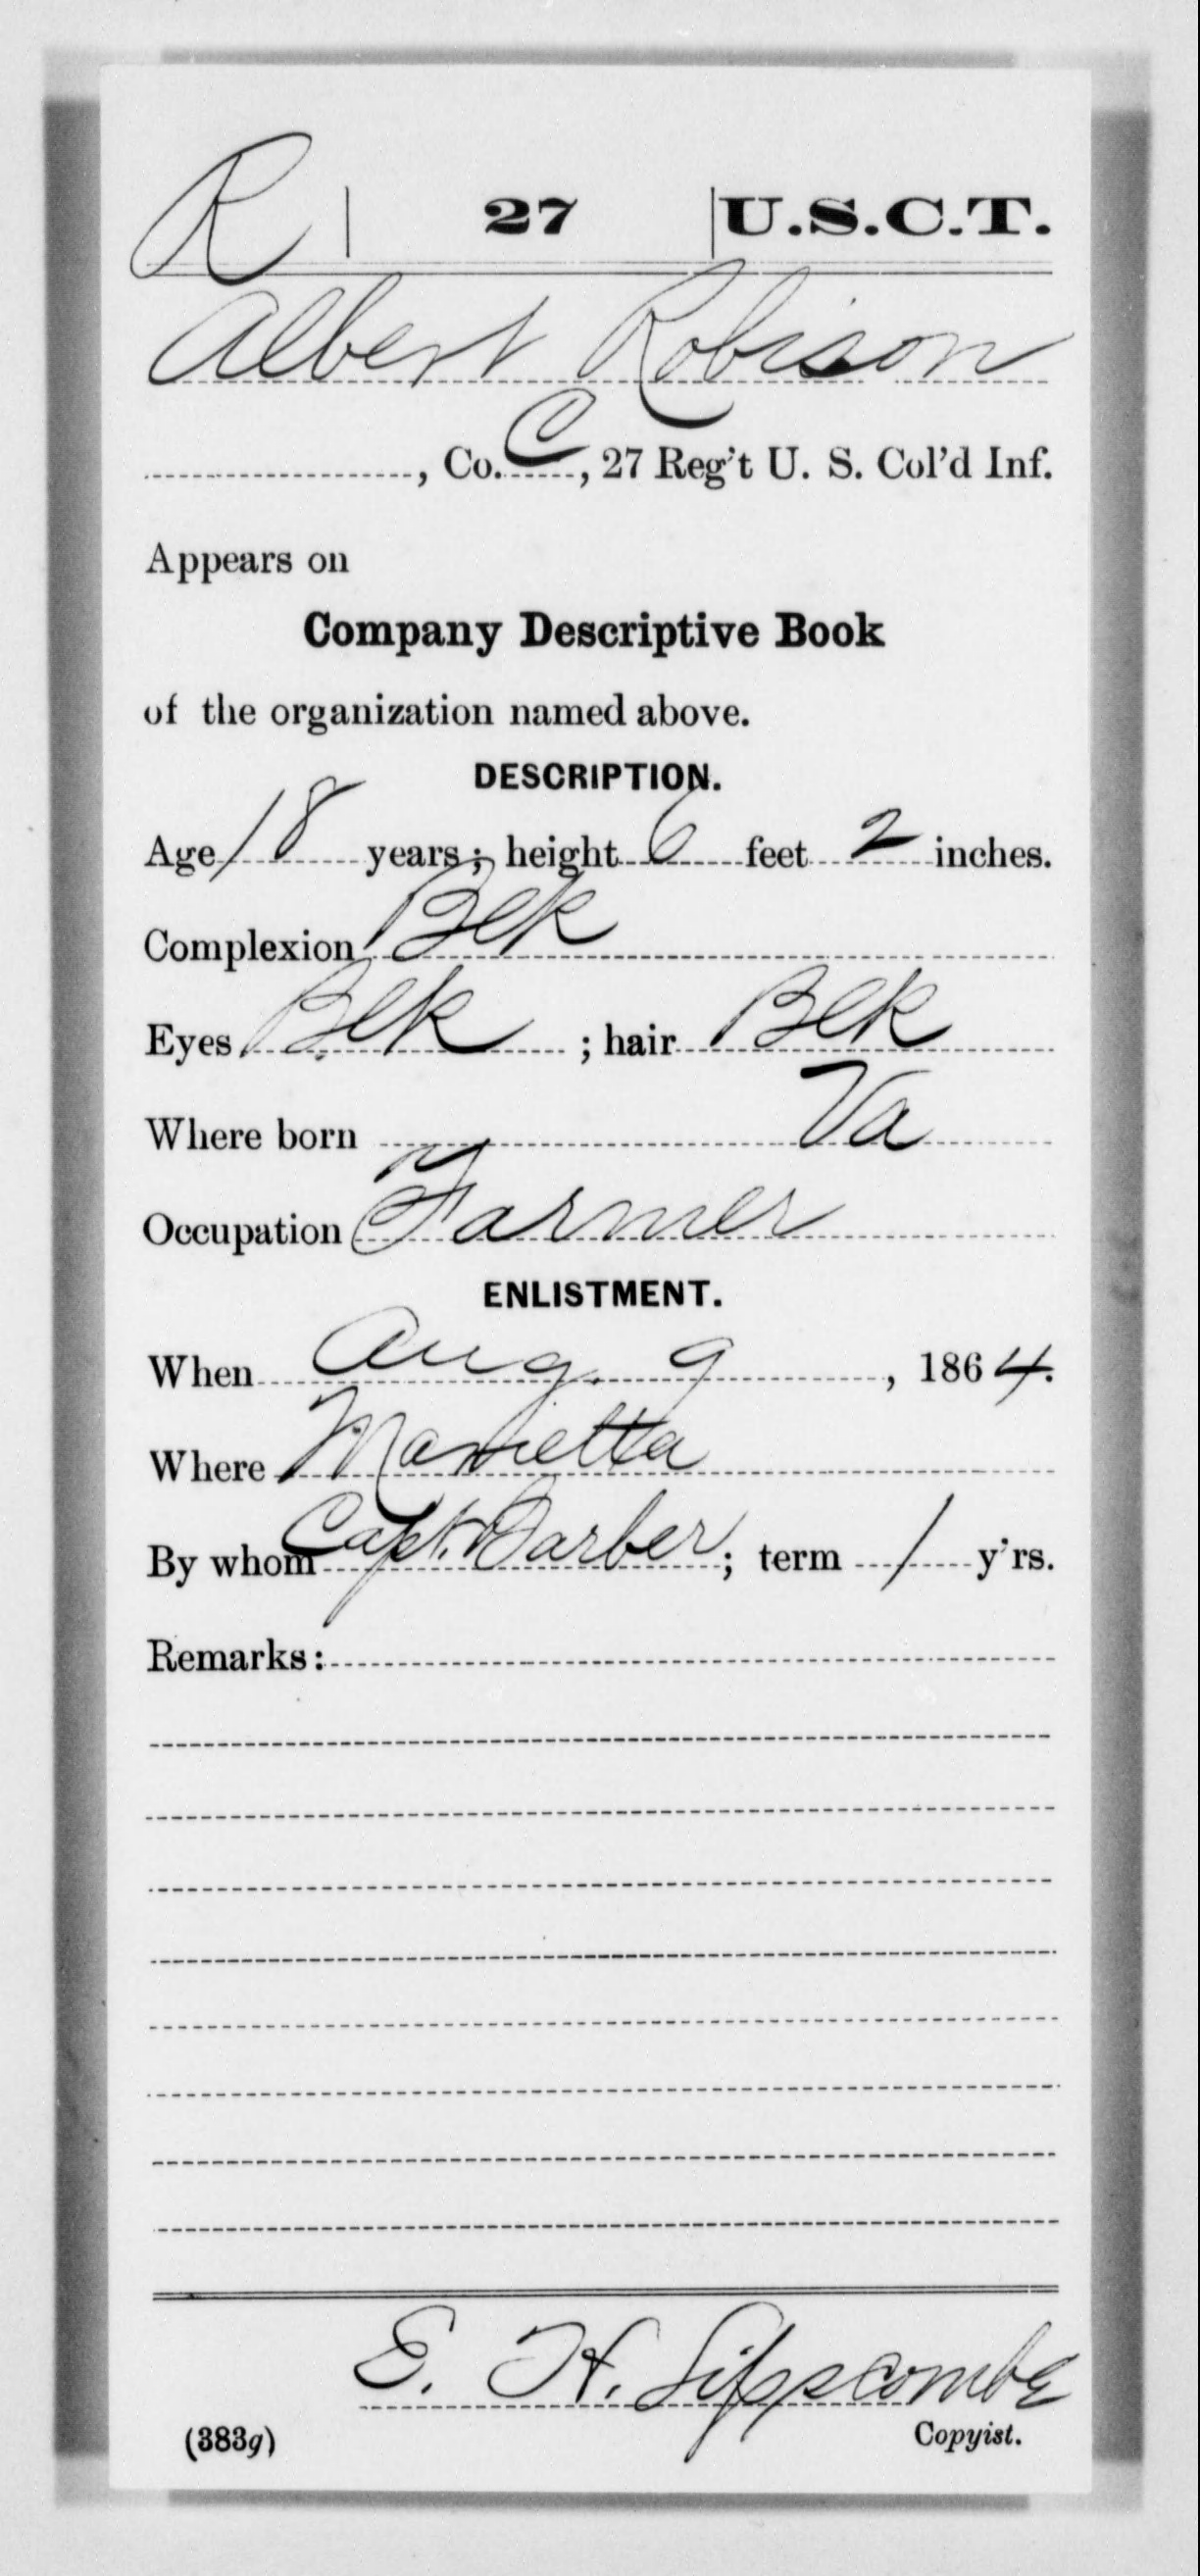 R | 27 | U.S.C.T.
Albert Robison
, Co. C, 27 Reg't U. S. Col'd Inf.
Appears on
Company Descriptive Book
of the organization named above.
DESCRIPTION.
Age 18 years; height 6 feet 2 inches.
Complexion Blk
Eyes Blk ; hair Blk
Where born Va
Occupation Farmer
ENLISTMENT.
When Aug. 9, 1864.
Where Marietta
By whom Capt. Barber; term 1 y'rs.
Remarks:
E. H. Lipscombe
(383g) Copyist.